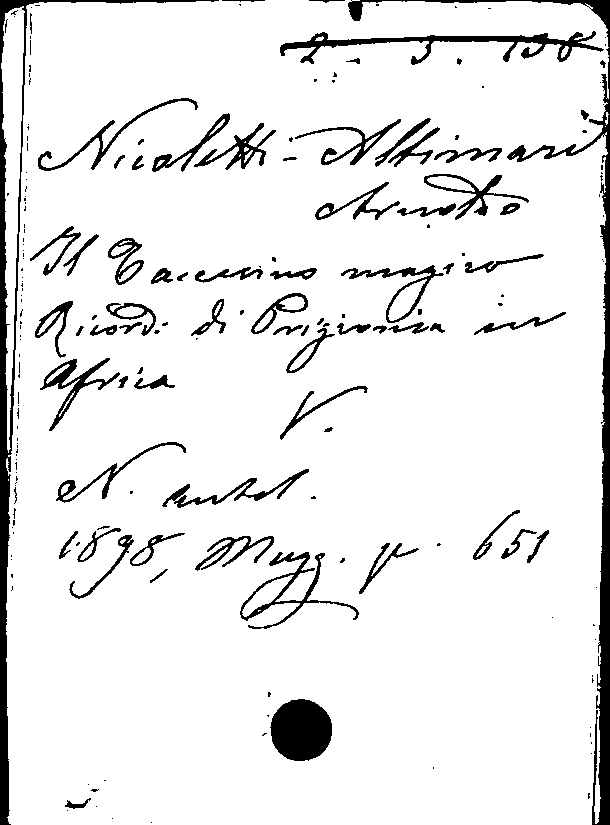 2. 3. 138
Nicoletti-Altimari
Arnoldo
Il Taccuino magico
Ricordi di Prigionia in
Africa
V.
N. antol.
1898, Magg. p. 651